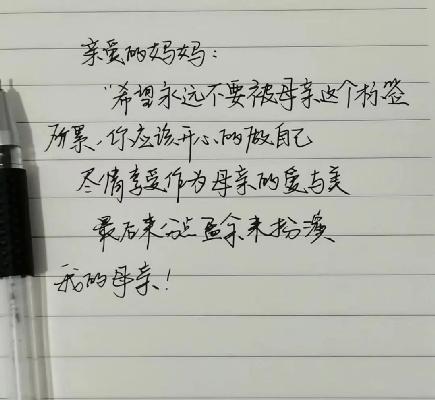 亲爱的妈妈：
"希望永远不要被母亲这个标签
所累，你应该开心的做自己
尽情享受作为母亲的爱与美
最后来分点盈余来扮演
我的母亲！